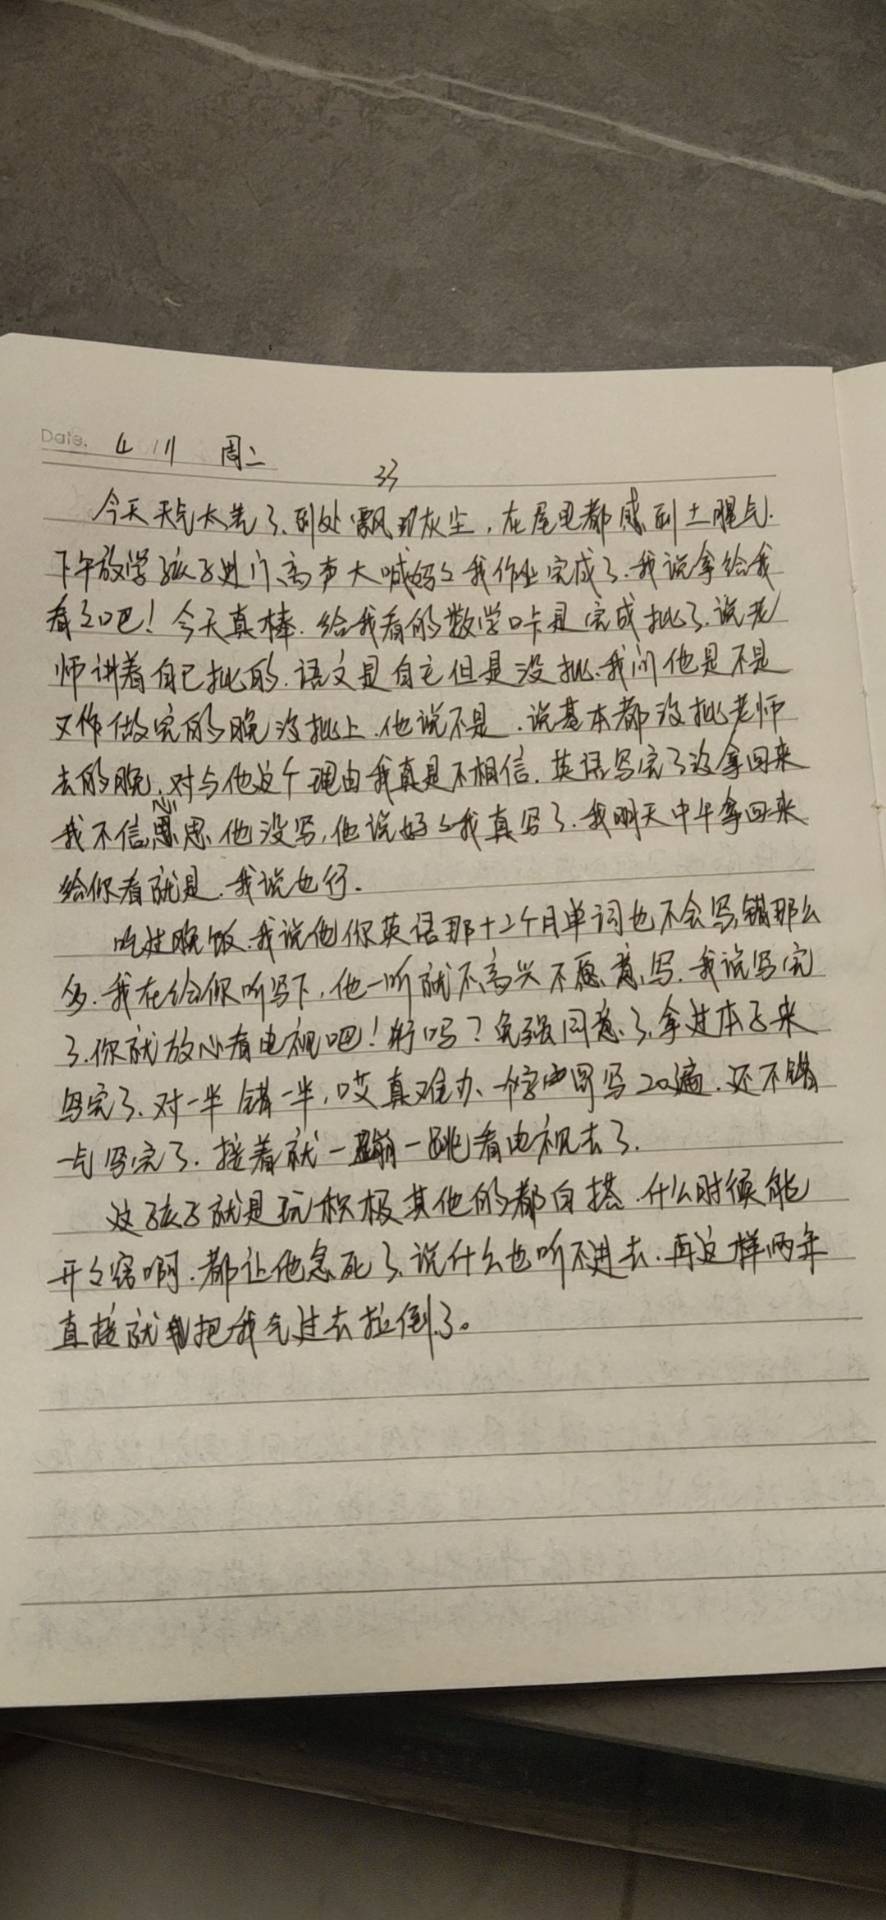 Date. 4 11 周二
33
今天天气太差了、到处飘的灰尘，在屋里都感到土腥气.
下午放学孩子进门、高声大喊妈々我作业完成了.我说拿给我
看々吧！今天真棒.给我看的数学口卡是完成批了.说老
师讲着自己批的.语文是自己但是没批.我问他是不是
又作做完的晚没批上.他说不是.说基本都没批老师
去的晚、对与他这个理由我真是不相信.英语写完了没拿回来
我不信 思 他没写,他说妈々我真写了.我明天中午拿回来
给你看就是.我说也行.
吃过晚饭.我说他你英语那十二个月单词也不会写,错那么
多.我在给你听写下,他一听就不高兴不愿意写.我说写完
了.你就放心看电视吧！行吗？免强同意了,拿过本子来
写完了.对一半错一半,哎真难办、写20遍.还不错
一气写完了.接着就一蹦一跳看电视去了.
这孩子就是玩积极其他的都白搭.什么时候能
开々窍啊.都让他急死了,说什么也听不进去.再这样两年
直接就把我气过去拉倒了。